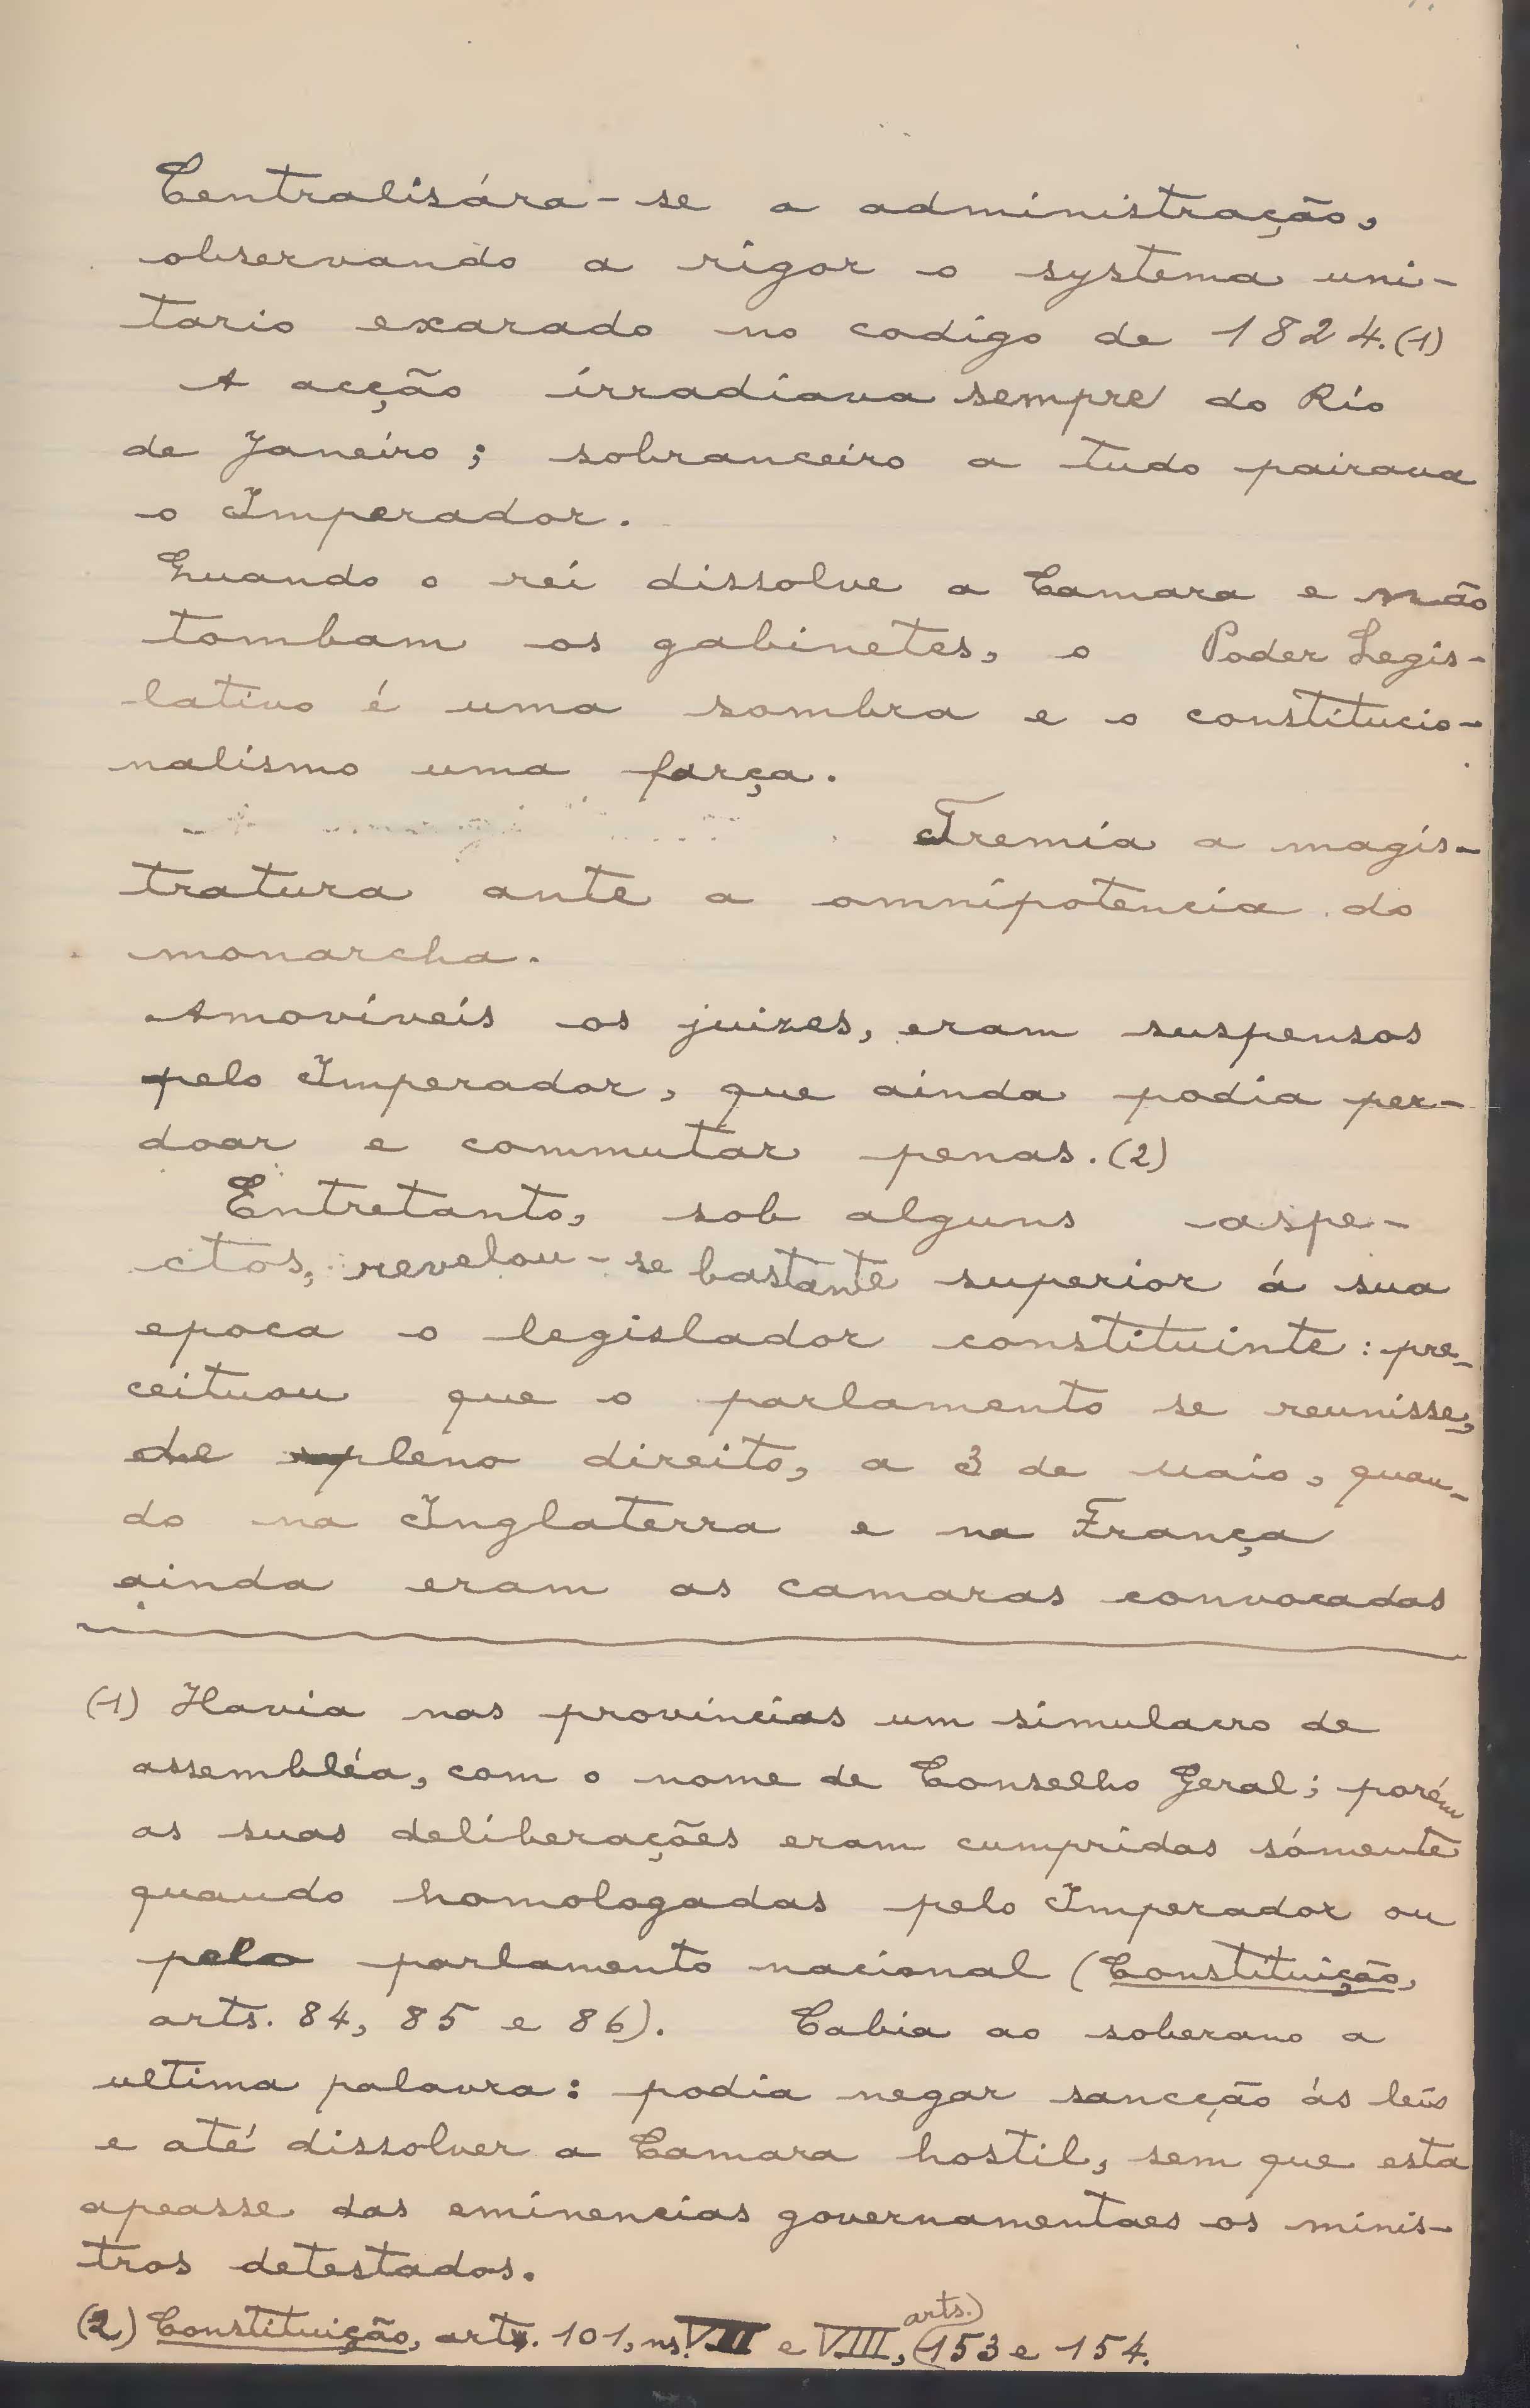 Centralisára-se a administração,
observando a rigor o systema uni-
tario exarado no codigo de 1824.(1)
A acção irradiava sempre do Rio
de Janeiro; sobranceiro a tudo pairava
o Imperador.
Quando o rei dissolve a Camara e não
tombam os gabinetes, o Poder Legis-
lativo é uma sombra e o constitucio-
nalismo uma farça.
Tremia a magis-
tratura ante a omnipotencia do
monarcha.
Amoviveis os juizes, eram suspensos
pelo Imperador, que ainda podia per-
doar e commutar penas.(2)
Entretanto, sob alguns aspe-
ctos, revelou-se bastante superior á sua
epoca o legislador constituinte: pre-
ceituou que o parlamento se reunisse,
de pleno direito, a 3 de Maio, quan-
do na Inglaterra e na França
ainda eram as camaras convocadas
(1) Havia nas provincias um simulacro de
assembléa, com o nome de Conselho Geral; porém
as suas deliberações eram cumpridas sómente
quando homologadas pelo Imperador ou
pelo parlamento nacional (Constituição,
arts. 84, 85 e 86). Cabia ao soberano a
ultima palavra: podia negar sancção ás leis
e até dissolver a Camara hostil, sem que esta
apeasse das eminencias governamentaes os minis-
tros detestados.
(2) Constituição, art. 101, ns. VII e VIII, arts. 153 e 154.